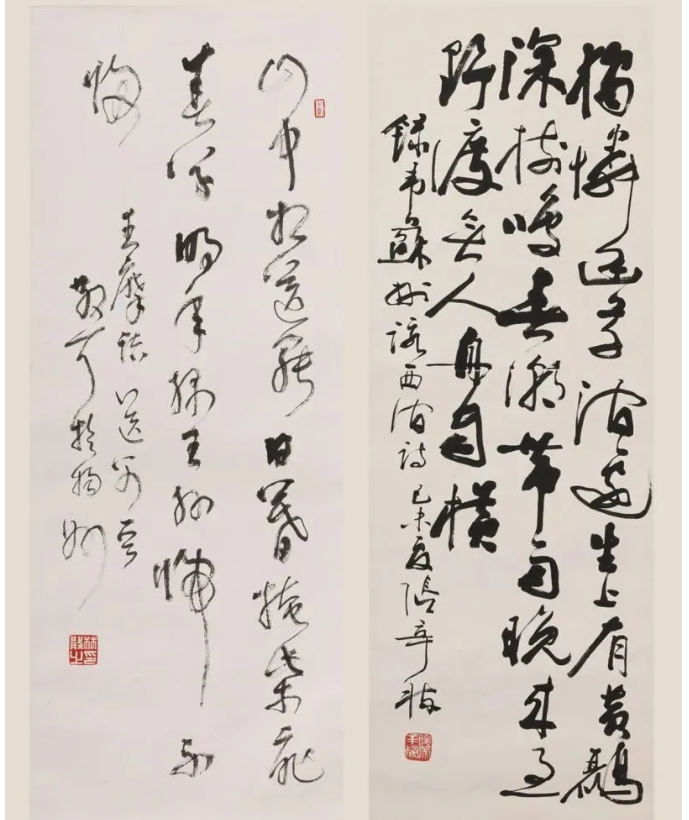 獨憐幽草澗邊生上有黃鸝
深樹鳴春潮帶雨晚來急
野渡無人舟自橫
錄韋蘇州西澗詩己未夏張辛稼
山中相送罷日暮掩柴扉
春草明年綠王孫歸不
歸
王摩詰送別
散耳於揚州
林散之印